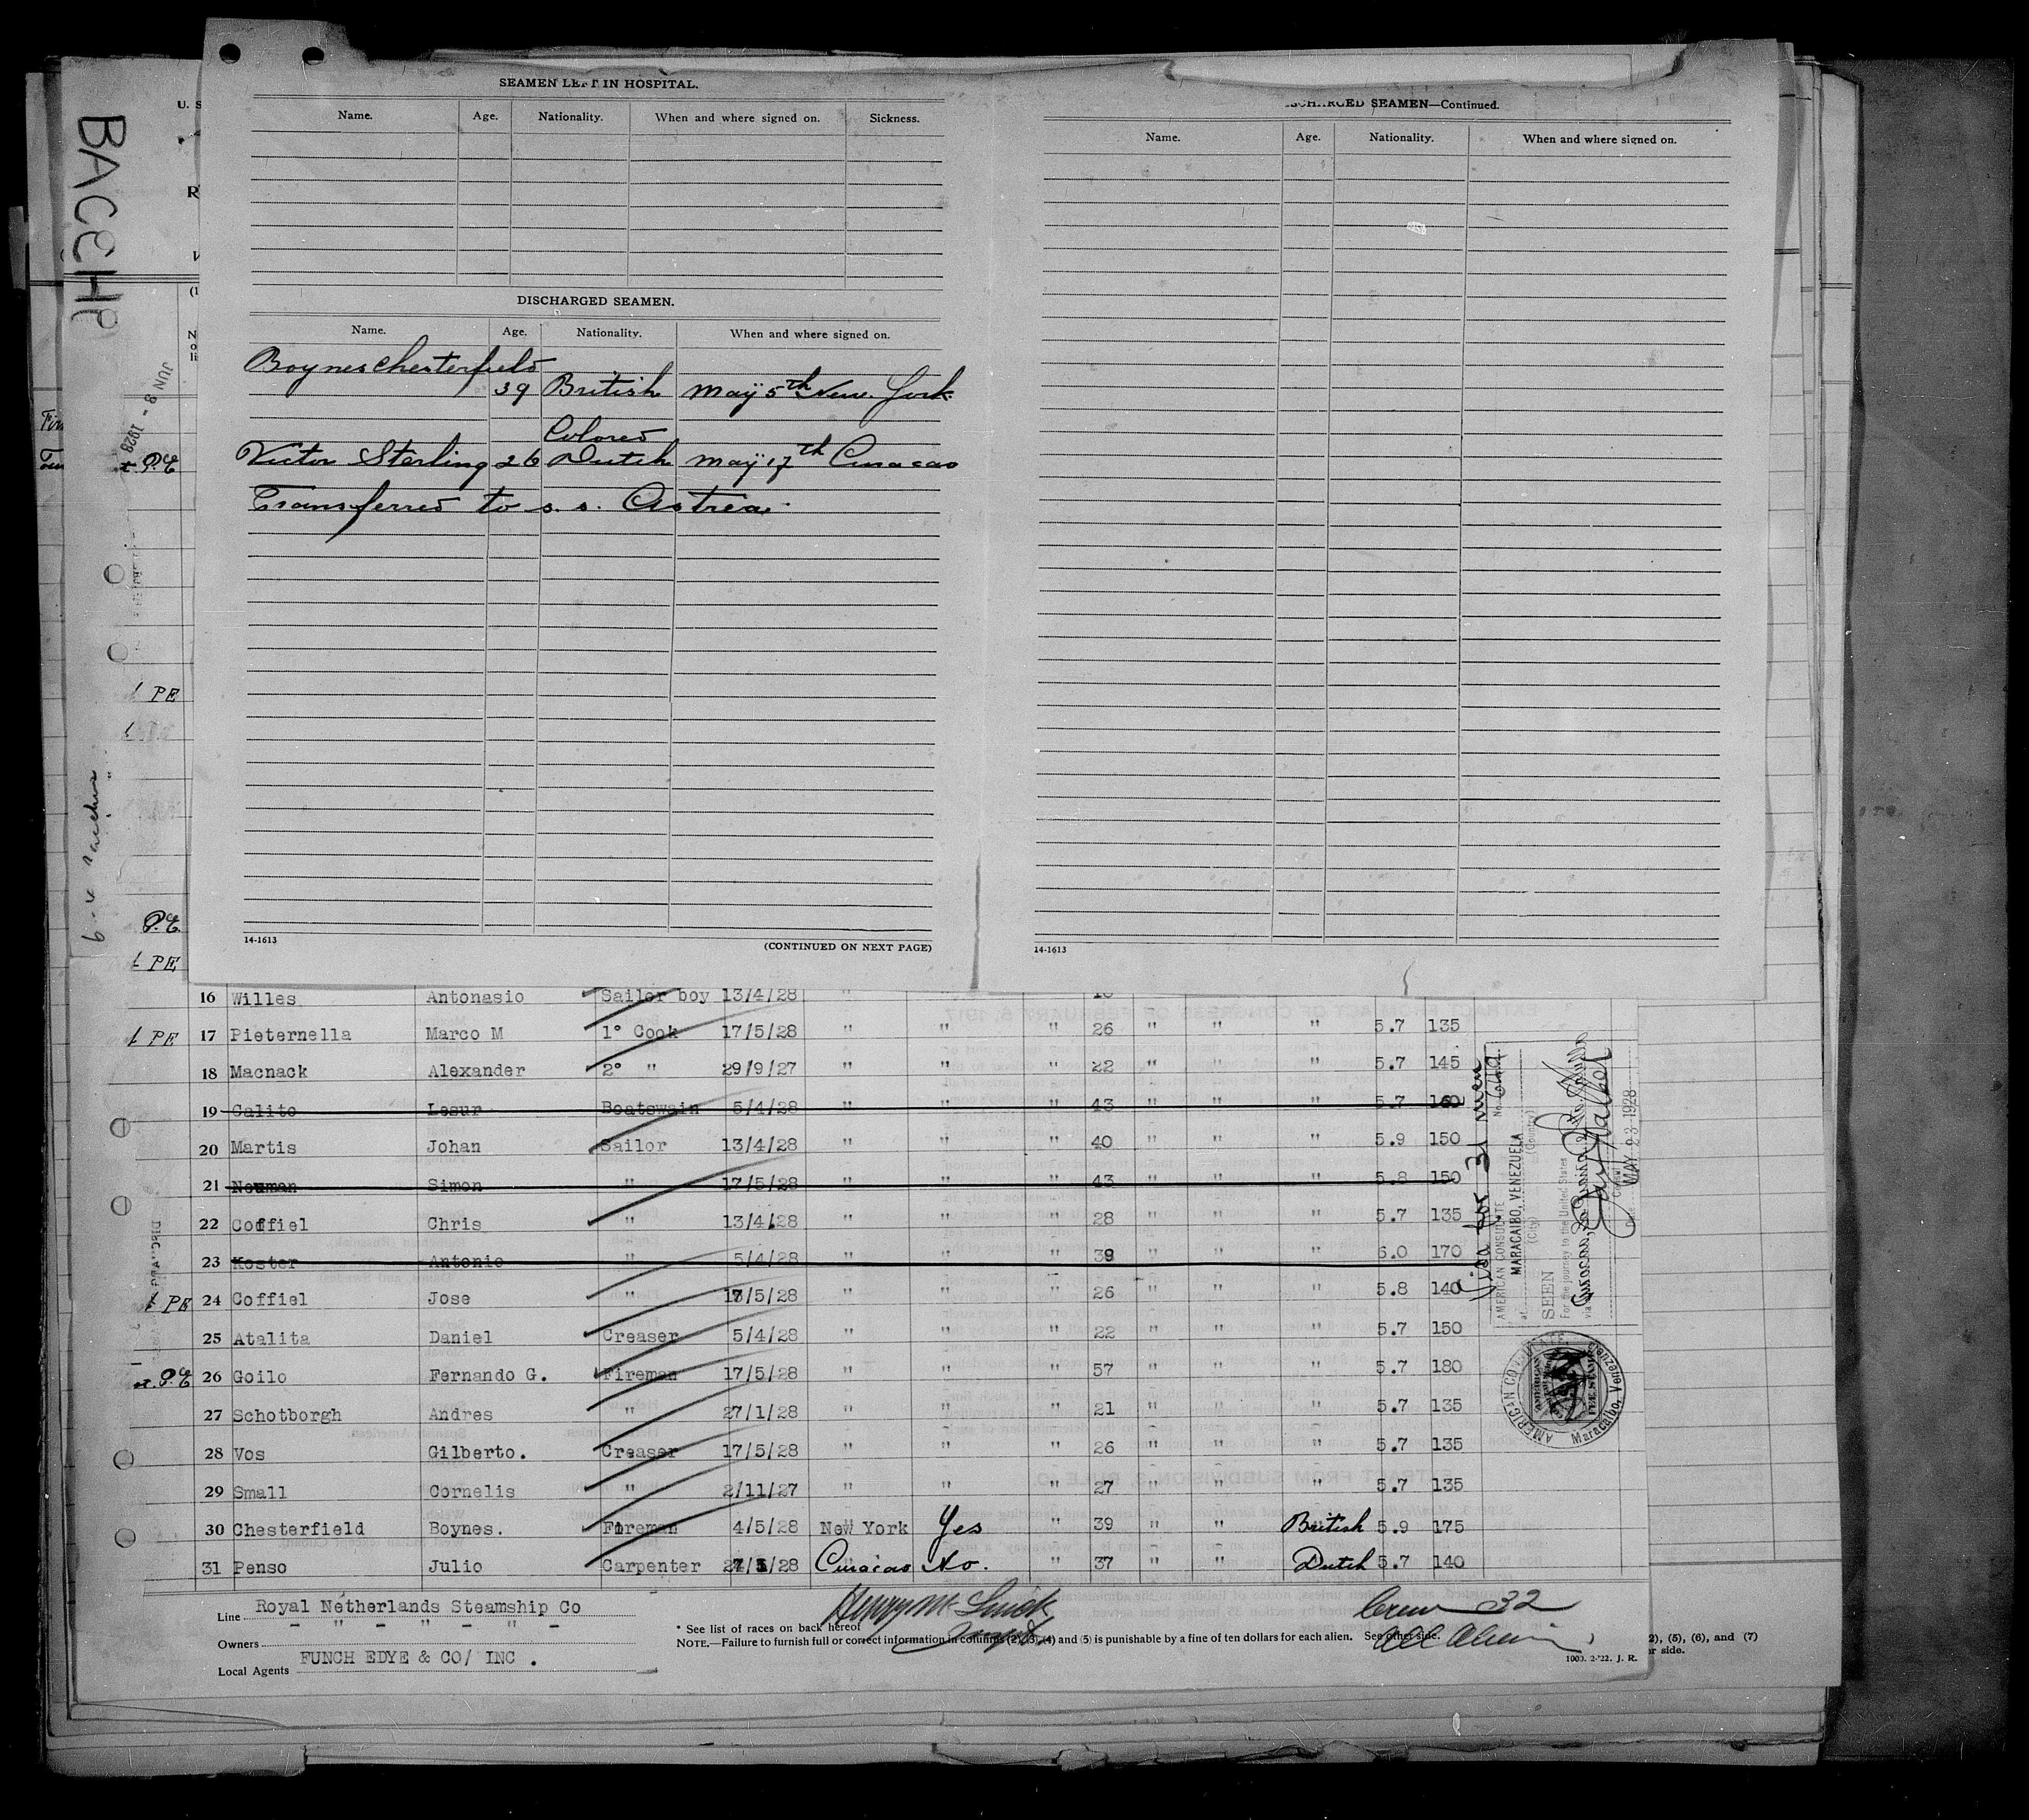 SEAMEN LEFT IN HOSPITAL.
Name. Age. Nationality. When and where signed on. Sickness.
DISCHARGED SEAMEN.
Name. Age. Nationality. When and where signed on.
Boynes Chesterfield
39 British May 5th New York
Colored
Victor Sterling 26 Dutch May 17th Curacao
Transferred to s. s. Astrea
14-1613
(CONTINUED ON NEXT PAGE)
DISCHARGED SEAMEN—Continued.
Name. Age. Nationality. When and where signed on.
14-1613
BACCHP
U. S
R
JUN 8 - 1928
P.E
1 PE
P.E.
1 PE
1 PE
1 PE
P.E
16 Willes Antonasio Sailor boy 13/4/28 " " "
17 Pieternella Marco M 1° Cook 17/5/28 " " " 26 " " " 5.7 135
18 Macnack Alexander 2° " 29/9/27 " " " 22 " " " 5.7 145
19 Calito Lesur Boatswain 5/4/28 " " " 43 " " " 5.7 160
20 Martis Johan Sailor 13/4/28 " " " 40 " " " 5.9 150
21 Neuman Simon " 17/5/28 " " " 43 " " " 5.8 150
22 Coffiel Chris " 13/4/28 " " " 28 " " " 5.7 135
23 Koster Antonio " 5/4/28 " " " 39 " " " 6.0 170
24 Coffiel Jose " 17/5/28 " " " 26 " " " 5.8 140
25 Atalita Daniel Creaser 5/4/28 " " " 22 " " " 5.7 150
26 Goilo Fernando G. Fireman 17/5/28 " " " 57 " " " 5.7 180
27 Schotborgh Andres " 27/1/28 " " " 21 " " " 5.7 135
28 Vos Gilberto. Creaser 17/5/28 " " " 26 " " " 5.7 135
29 Small Cornelis " 2/11/27 " " " 27 " " " 5.7 135
30 Chesterfield Boynes. Fireman 4/5/28 New York Yes " 39 " " British 5.9 175
31 Penso Julio Carpenter /28 Curacao No. " 37 " " Dutch 5.7 140
Visa for 31 men
AMERICAN CONSULATE
at MARACAIBO, VENEZUELA
(City) (Country)
SEEN
For the journey to the United States
via Curacao,
Consul
Date MAY 23 1928
AMERICAN CONSULATE Maracaibo, Venezuela
AMERICAN
FEE STAMP
Line Royal Netherlands Steamship Co
- " - " - " - " -
Owners
Local Agents FUNCH EDYE & CO/ INC .
* See list of races on back hereof
NOTE.—Failure to furnish full or correct information in columns (2), (3), (4) and (5) is punishable by a fine of ten dollars for each alien. See other side.
Crew 32
All Aliens
1000. 2-'22. J. R.
2), (5), (6), and (7)
r side.